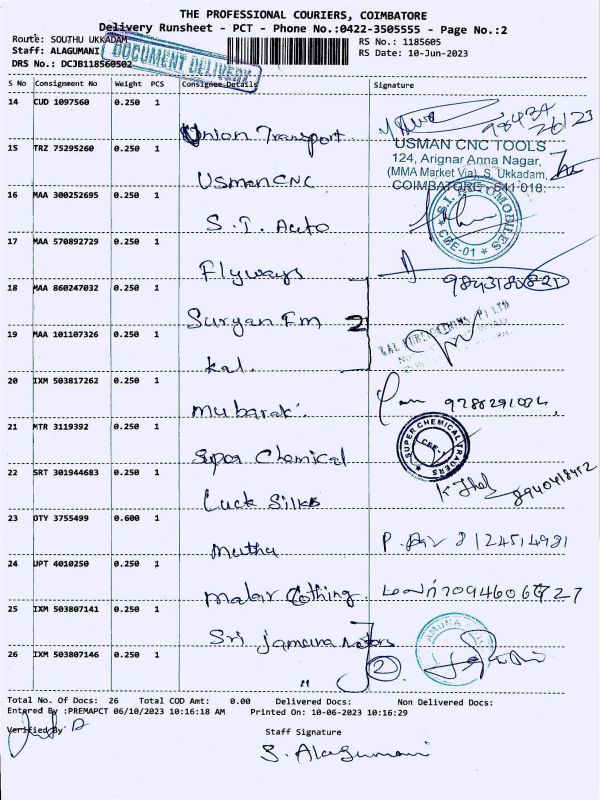 THE PROFESSIONAL COURIERS, COIMBATORE
Delivery Runsheet - PCT - Phone No.:0422-3505555 - Page No.:2
Route: SOUTHU UKKADAM
Staff: ALAGUMANI
DRS No.: DCJB118560502
DOCUMENT DELIVERY
RS No.: 1185605
RS Date: 10-Jun-2023
S No Consignment No Weight PCS Consignee Details Signature
14 CUD 1097560 0.250 1
Union Transport
15 TRZ 75295260 0.250 1
USMAN CNC TOOLS
124, Arignar Anna Nagar,
(MMA Market Via), S. Ukkadam,
COIMBATORE - 641 018.
Usman CNC
16 MAA 300252695 0.250 1
S.I. Auto
S.I. AUTOMOBILES
CBE-01
17 MAA 570892729 0.250 1
Flyways
18 MAA 860247032 0.250 1
9843180821
Suryan Fm 2
19 MAA 101107326 0.250 1
KAL PUBLICATIONS P LTD
kal.
20 IXM 503817262 0.250 1
Mubarak
21 MTR 3119392 0.250 1
SUPER CHEMICAL TRADERS
CBE
Super Chemical
22 SRT 301944683 0.250 1
Luck Silks
8940418452
23 DTY 3755499 0.600 1
Muthu
8124514981
24 JPT 4010250 0.250 1
Malar Clothing
25 IXM 503807141 0.250 1
Sri Jamuna Motors
26 IXM 503807146 0.250 1
"
2
Total No. Of Docs: 26 Total COD Amt: 0.00 Delivered Docs: Non Delivered Docs:
Entered By :PREMAPCT 06/10/2023 10:16:18 AM Printed On: 10-06-2023 10:16:29
Verified By
Staff Signature
S. Alagumani